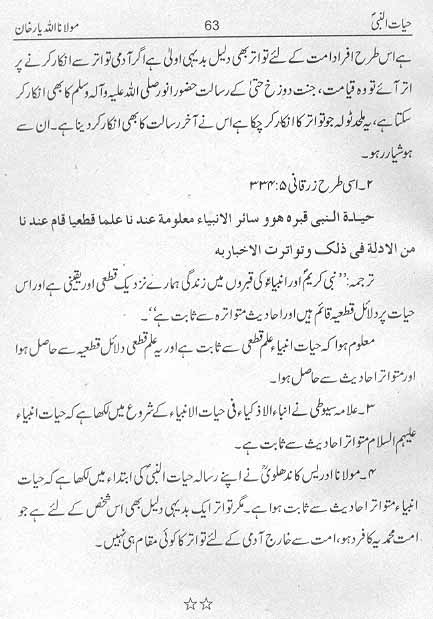 حیات النبیؐ 63 مولانا اللہ یار خان
ہے اس طرح افراد امت کے لئے تواتر بھی دلیل بدیہی اولیٰ ہے اگر آدمی تواتر سے انکار کرنے پر
اتر آئے تو وہ قیامت، جنت دوزخ حتیٰ کے رسالت حضور انور صلی اللہ علیہ وآلہ وسلم کا بھی انکار کر
سکتا ہے، یہ ملحد ٹولہ جو تواتر کا انکار کر چکا ہے اس نے آخر رسالت کا بھی انکار کر دینا ہے۔ ان سے
ہوشیار رہو۔
۲۔ اسی طرح زرقانی ۵: ۳۳۴
حیـدۃ الـنبـی قبـرہ ھوو سائر الانبیاء معلومة عندنا علما قطعیا قام عندنا
من الادلة فی ذلک وتواترت الاخباربه
ترجمہ: ’’نبی کریمؐ اور انبیاءؑ کی قبروں میں زندگی ہمارے نزدیک قطعی اور یقینی ہے اور اس
حیات پر دلائل قطعیہ قائم ہیں اور احادیث متواترہ سے ثابت ہے‘‘۔
معلوم ہوا کہ حیات انبیاء علم قطعی سے ثابت ہے اور یہ علم قطعی دلائل قطعیہ سے حاصل ہوا
اور متواتر احادیث سے حاصل ہوا۔
۳۔ علامہ سیوطی نے انباء الاذکیاء فی حیات الانبیاء کے شروع میں لکھا ہے کہ حیات انبیاء
علیہم السلام متواتر احادیث سے ثابت ہے۔
۴۔ مولانا ادریس کاندھلویؒ نے اپنے رسالہ حیات النبیؐ کی ابتداء میں لکھا ہے کہ حیات
انبیاء متواتر احادیث سے ثابت ہوا ہے۔ مگر تواتر ایک بدیہی دلیل بھی اس شخص کے لئے ہے جو
امت محمدیہ کا فرد ہو، امت سے خارج آدمی کے لئے تواتر کا کوئی مقام ہی نہیں۔
☆☆